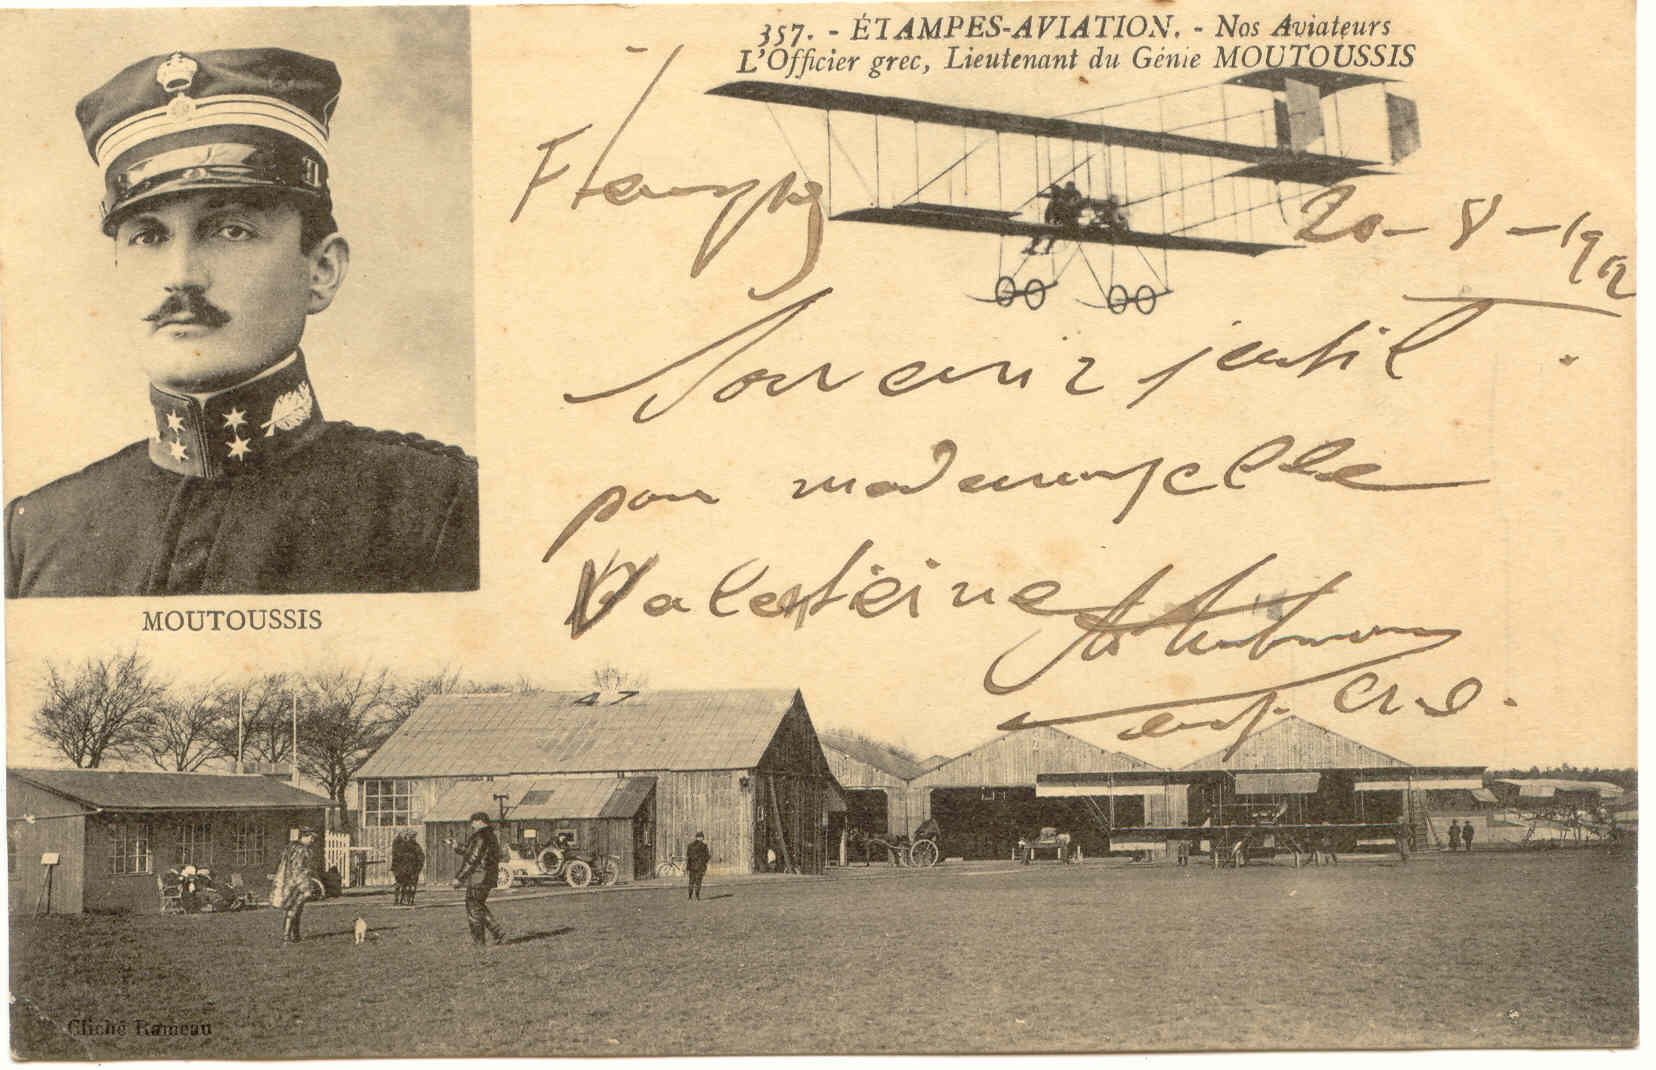 357. - ÉTAMPES-AVIATION. - Nos Aviateurs
L'Officier grec, Lieutenant du Génie MOUTOUSSIS
20-8-1912
Souvenir jentil
pour mademoyselle
Valenteine
MOUTOUSSIS
Cliché Rameau